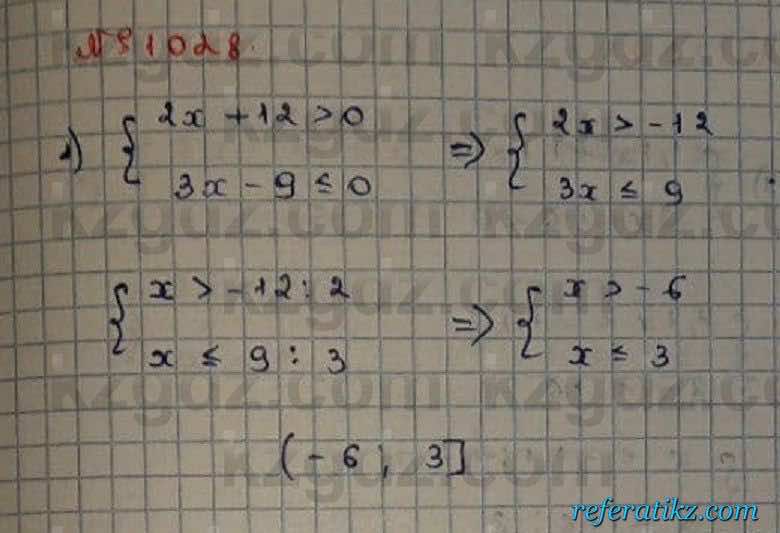 № 1028.
1) { 2x + 12 > 0 => { 2x > -12
3x - 9 ≤ 0 3x ≤ 9
{ x > -12 : 2 => { x > -6
x ≤ 9 : 3 x ≤ 3
(-6; 3]
kzgdz.com
referatikz.com